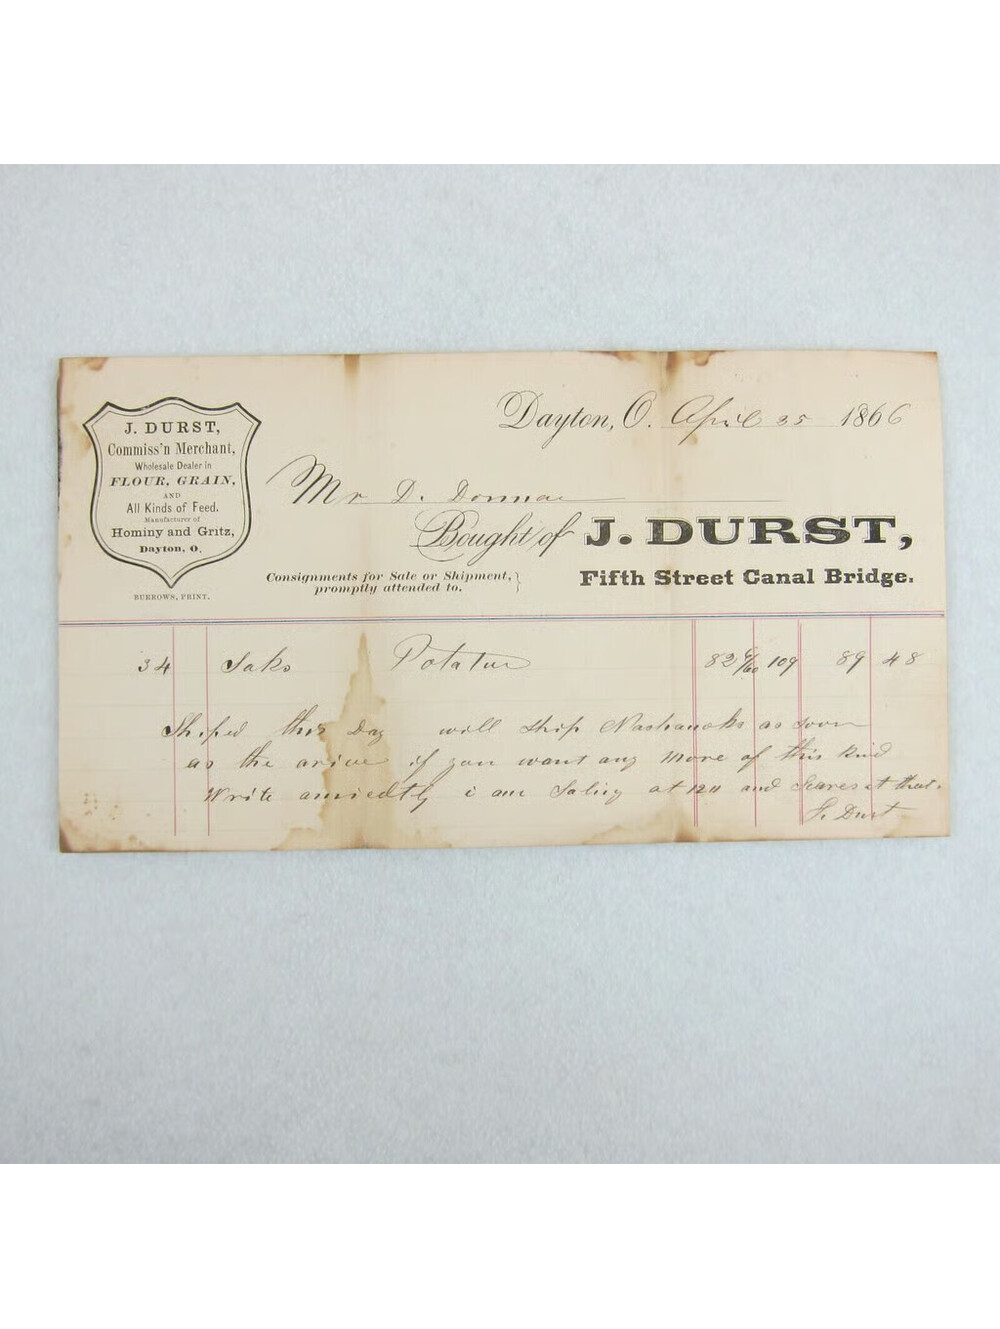 J. DURST,
Commiss'n Merchant,
Wholesale Dealer in
FLOUR, GRAIN,
AND
All Kinds of Feed.
Manufacturer of
Hominy and Gritz,
Dayton, O.
BURROWS, PRINT.
Dayton, O. April 25 1866
Mr D.
Bought of J. DURST,
Consignments for Sale or Shipment, promptly attended to.
Fifth Street Canal Bridge.
34 Saks Potatus 82 4/60 109 89 48
Shiped this Day will ship Nashanoks as soon
as the arive if you want any more of this kind
Write amiedtly i am Saling at 120 and Scares at that.
J. Durst